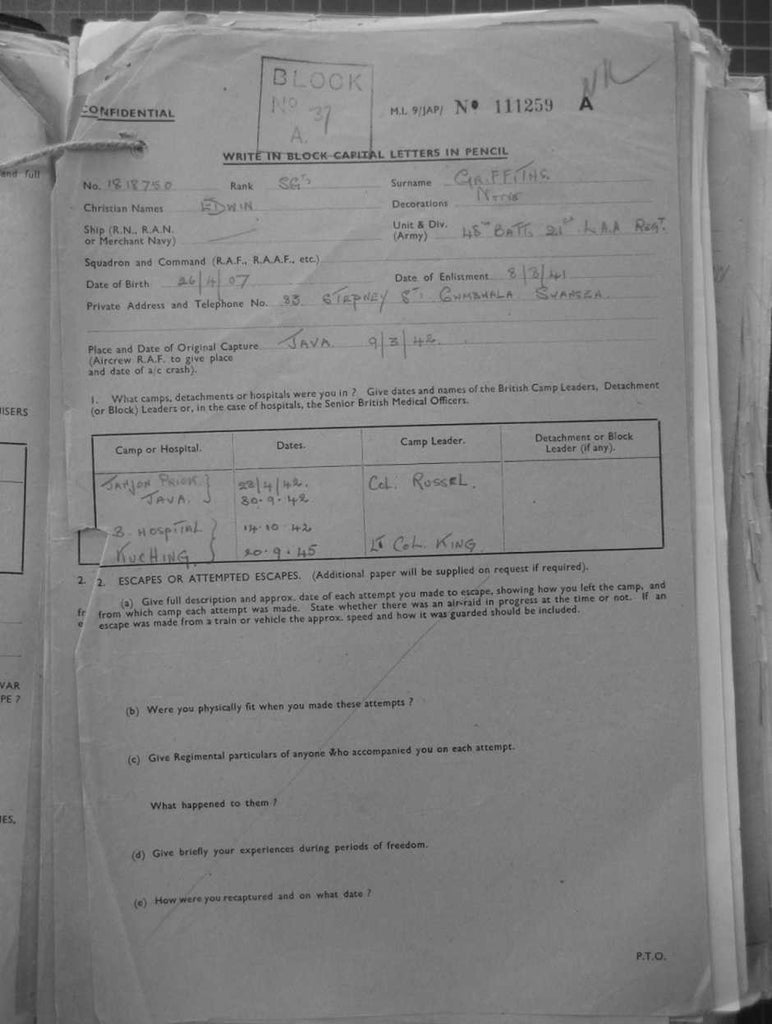 BLOCK
No 37
A.
CONFIDENTIAL
M.I. 9/JAP/ No 111259 A
WRITE IN BLOCK CAPITAL LETTERS IN PENCIL
No. 1818750 Rank SGT Surname GRIFFITHS
Christian Names EDWIN Decorations
Ship (R.N., R.A.N. or Merchant Navy)
Unit & Div. (Army) 48TH BATT. 21ST L.A.A REGT.
Squadron and Command (R.A.F., R.A.A.F., etc.)
Date of Birth 26/4/07 Date of Enlistment 8/3/41
Private Address and Telephone No. 83 STEPNEY ST. CWMBWRLA SWANSEA
Place and Date of Original Capture JAVA 9/3/42.
(Aircrew R.A.F. to give place
and date of a/c crash).
1. What camps, detachments or hospitals were you in ? Give dates and names of the British Camp Leaders, Detachment
(or Block) Leaders or, in the case of hospitals, the Senior British Medical Officers.
Camp or Hospital. Dates. Camp Leader. Detachment or Block Leader (if any).
TANJON PRIOK } 23/4/42. COL. RUSSEL.
JAVA. 30.9.42
B. HOSPITAL } 14.10.42
KUCHING 20.9.45 LT COL. KING
2. 2. ESCAPES OR ATTEMPTED ESCAPES. (Additional paper will be supplied on request if required).
(a) Give full description and approx. date of each attempt you made to escape, showing how you left the camp, and
fr from which camp each attempt was made. State whether there was an air-raid in progress at the time or not. If an
e escape was made from a train or vehicle the approx. speed and how it was guarded should be included.
(b) Were you physically fit when you made these attempts ?
(c) Give Regimental particulars of anyone who accompanied you on each attempt.
What happened to them ?
(d) Give briefly your experiences during periods of freedom.
(e) How were you recaptured and on what date ?
P.T.O.
and full
ISERS
VAR
PE ?
IES,